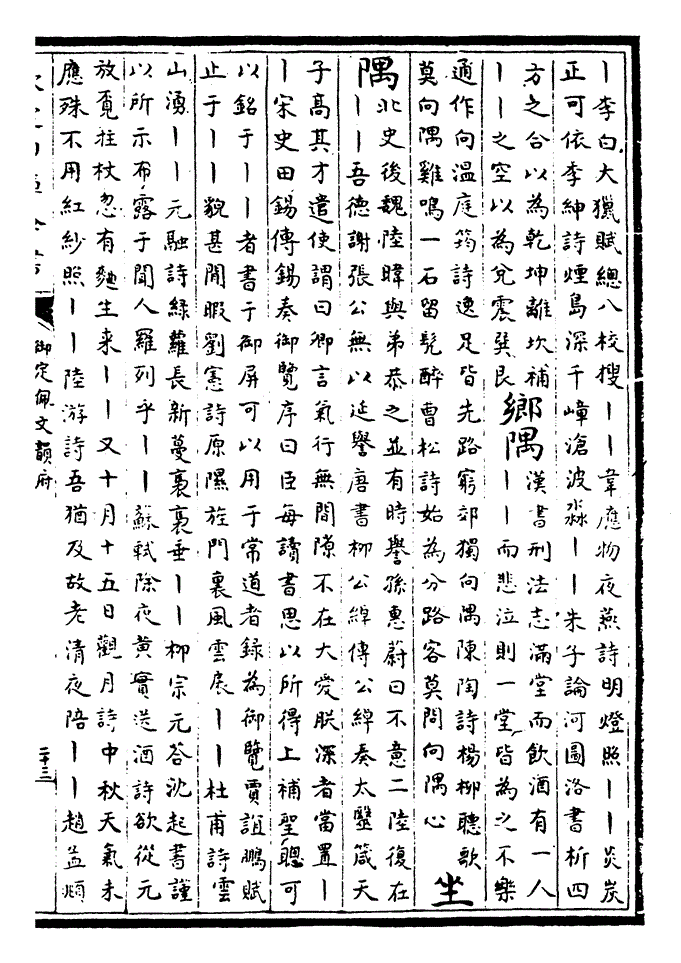 丨李白大獵賦總八校搜丨丨韋應物夜燕詩明燈照丨丨炎炭
正可依李紳詩煙島深千嶂滄波淼丨丨朱子論河圖洛書析四
方之合以為乾坤離坎補
丨丨之空以為兌震巽艮
鄉隅
漢書刑法志滿堂而飲酒有一人
丨丨而悲泣則一堂皆為之不樂
通作向溫庭筠詩逸足皆先路窮郊獨向隅陳陶詩楊柳聽歌
莫向隅雞鳴一石留髡醉曹松詩始為分路客莫問向隅心
坐
隅
北史後魏陸暐與弟恭之並有時譽孫惠蔚曰不意二陸復在
丨丨吾德謝張公無以延譽唐書柳公綽傳公綽奏太醫箴天
子高其才遣使謂曰卿言氣行無間隙不在大愛朕深者當置丨
丨宋史田錫傳錫奏御覽序曰臣每讀書思以所得上補聖聰可
以銘于丨丨者書于御屏可以用于常道者録為御覽賈誼鵩賦
止于丨丨貌甚閒暇劉憲詩原隰旌門裏風雲扆丨丨杜甫詩雲
山湧丨丨元融詩綠蘿長新蔓裊裊垂丨丨柳宗元荅沈起書謹
以所示布露于聞人羅列乎丨丨蘇軾除夜黄實送酒詩欲從元
放覓拄杖忽有麴生來丨丨又十月十五日觀月詩中秋天氣未
應殊不用紅紗照丨丨陸游詩吾猶及故老清夜陪丨丨趙孟頫
御定佩文韻府
二十三